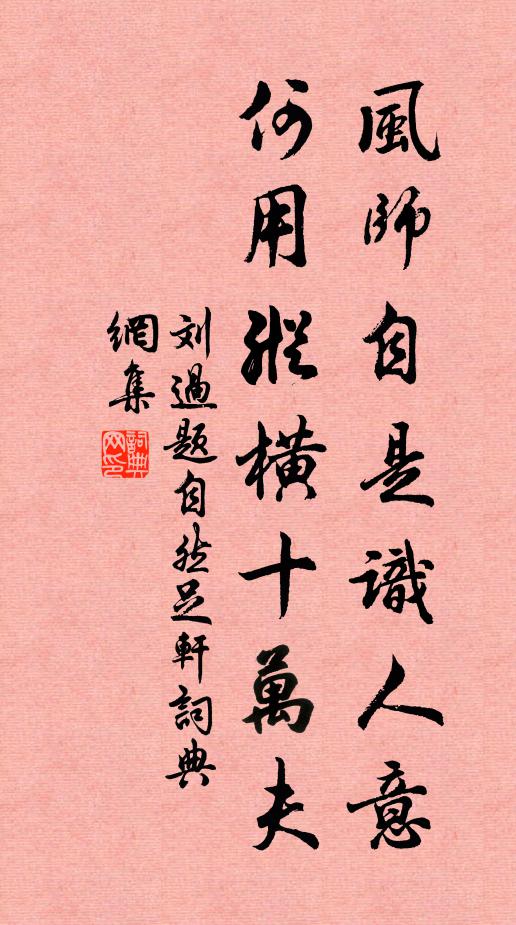 風師自是識人意
何用縱橫十萬夫
刘過題自然足軒詞典
網集
詞典網印